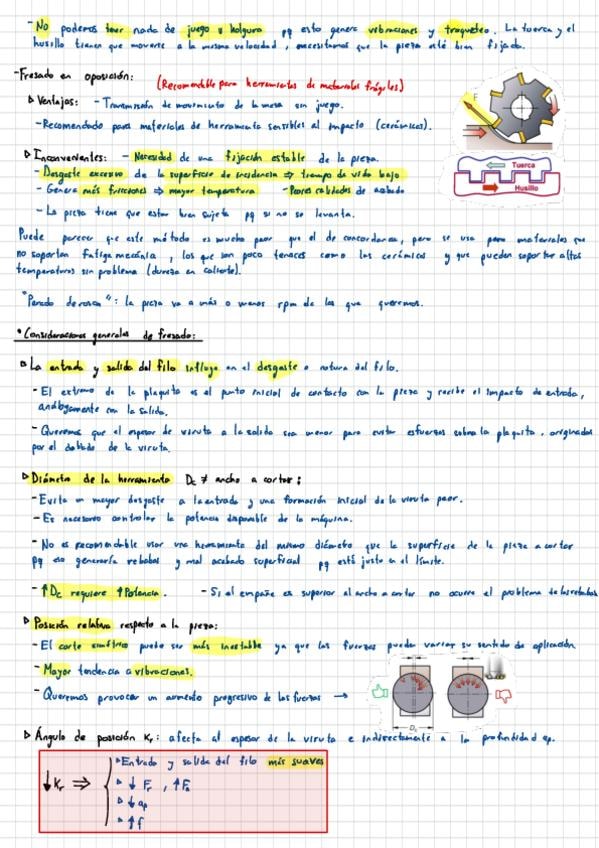 - No podemos tener nada de juego u holgura pq esto genera vibraciones y traqueteo. La tuerca y el
husillo tienen que moverse a la misma velocidad, necesitamos que la pieza esté bien fijada.
- Fresado en oposición: (Recomendable para herramientas de materiales frágiles)
Ventajas: - Transmisión de movimiento de la mesa sin juego.
- Recomendado para materiales de herramienta sensibles al impacto (cerámicos).
F
Tuerca
Husillo
Inconvenientes: - Necesidad de una fijación estable de la pieza.
- Desgaste excesivo de la superficie de incidencia ⇒ tiempo de vida bajo
- Genera más fricciones ⇒ mayor temperatura - Peores calidades de acabado
- La pieza tiene que estar bien sujeta pq si no se levanta.
Puede parecer que este método es mucho peor que el de concordancia, pero se usa para materiales que
no soportan fatiga mecánica, los que son poco tenaces como los cerámicos y que pueden soportar altas
temperaturas sin problema (dureza en caliente).
: la pieza va a más o menos rpm de las que queremos.
• Consideraciones generales de fresado:
La entrada y salida del filo influye en el desgaste o rotura del filo.
- El extremo de la plaquita es el punto inicial de contacto con la pieza y recibe el impacto de entrada,
análogamente con la salida.
- Queremos que el espesor de viruta a la salida sea menor para evitar esfuerzos sobre la plaquita, originados
por el doblado de la viruta.
Diámetro de la herramienta Dc ≠ ancho a cortar:
- Evita un mayor desgaste a la entrada y una formación inicial de la viruta peor.
- Es necesario controlar la potencia disponible de la máquina.
- No es recomendable usar una herramienta del mismo diámetro que la superficie de la pieza a cortar
pq eso generaría rebabas y mal acabado superficial pq está justo en el límite.
- ↑Dc requiere ↑Potencia. - Si el empañe es superior al ancho a cortar no ocurre el problema de las rebabas
Posición relativa respecto a la pieza:
- El corte simétrico puede ser más inestable ya que las fuerzas pueden variar su sentido de aplicación.
- Mayor tendencia a vibraciones.
- Queremos provocar un aumento progresivo de las fuerzas →
Dc
Ángulo de posición Kr: afecta al espesor de la viruta e indirectamente a la profundidad ap.
↓Kr ⇒
Entrada y salida del filo más suaves
↓Fr, ↑Fa
↓ap
↑f